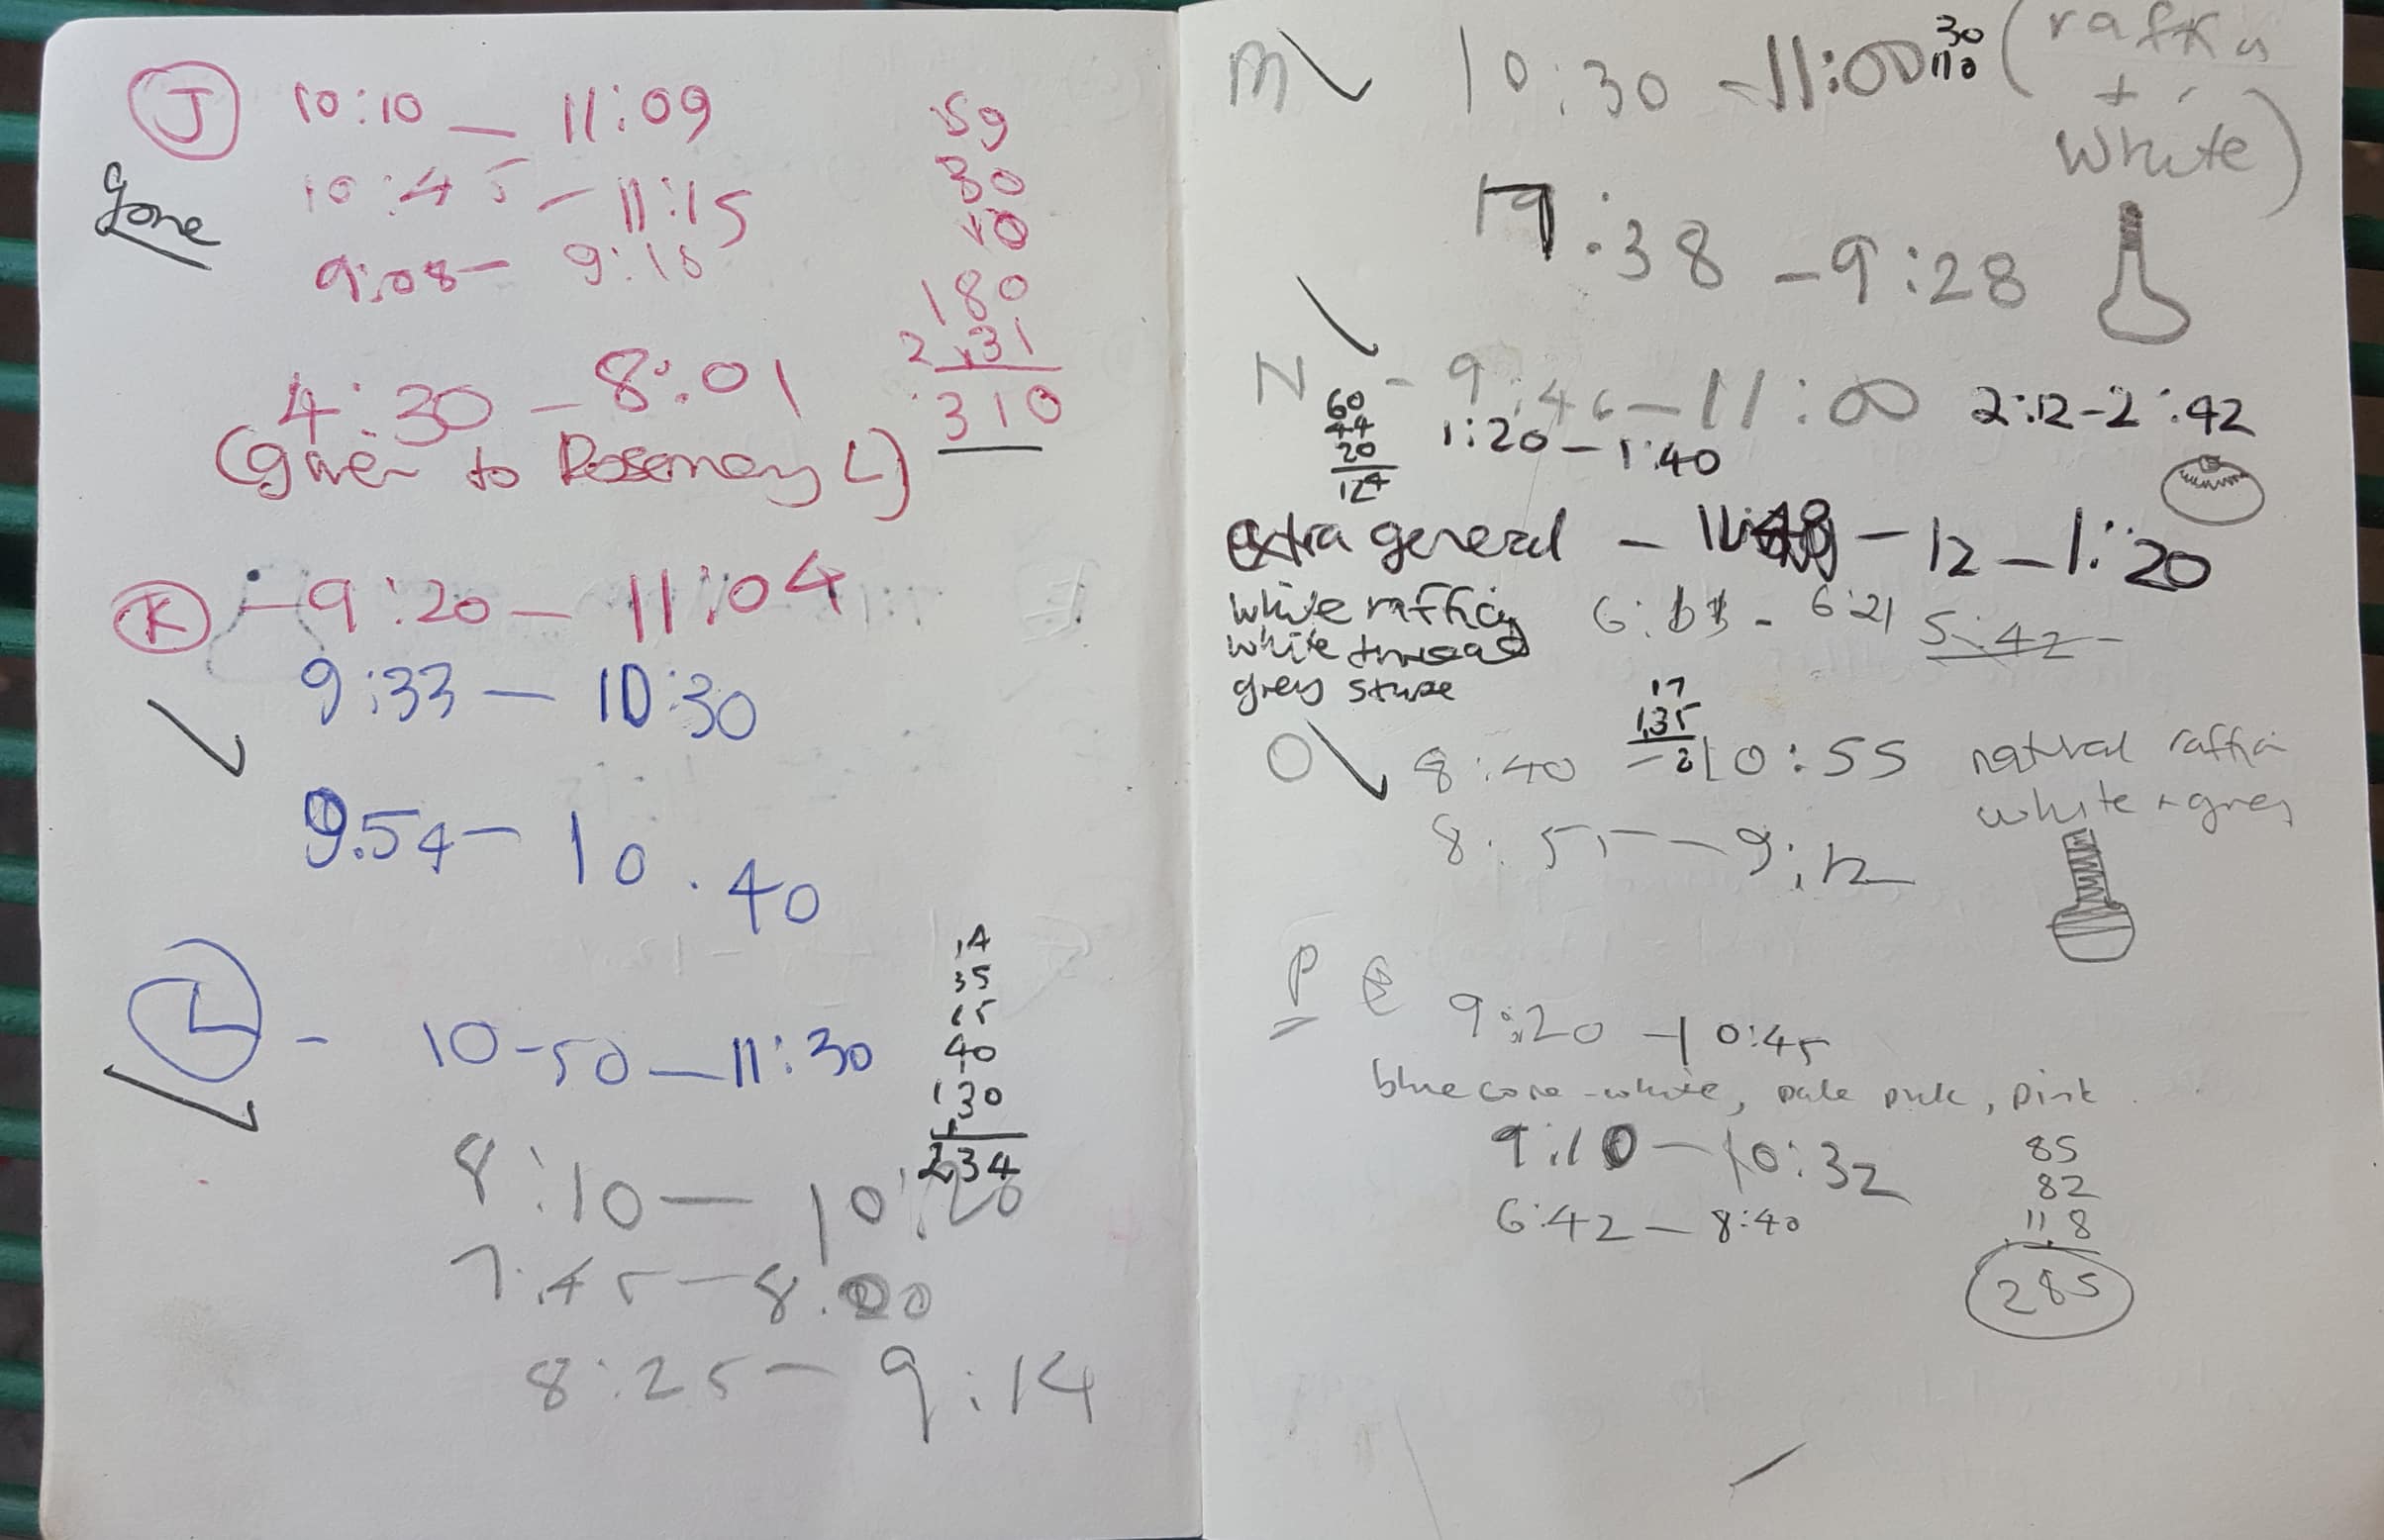 J 10:10 — 11:09 59
gone 10:45 — 11:15 30
9:08 — 9:18 10
180
4:30 — 8:01 31
(given to Rosemary L) 310
K — 9:20 — 11:04
9:33 — 10:30
9.54 — 10.40
14
35
15
L - 10-50 — 11:30 40
130
234
8:10 — 10:20
7:45 — 8.00
8:25 — 9:14
M 10:30 - 11:00 30 110 (raffia
+
white)
7:38 - 9:28
N - 9:46 — 11:00 2:12 - 2:42
60
44
20 1:20 — 1:40
124
extra general - 12 — 1:20
white raffia 6:21 5:42
white thread
grey
17
135
O 8:40 — 10:55 natural raffia
white + grey
8:55 — 9:12
P 9:20 — 10:45
blue core - white, pale pink, pink
9:10 — 10:32 85
82
6:42 — 8:40 118
285